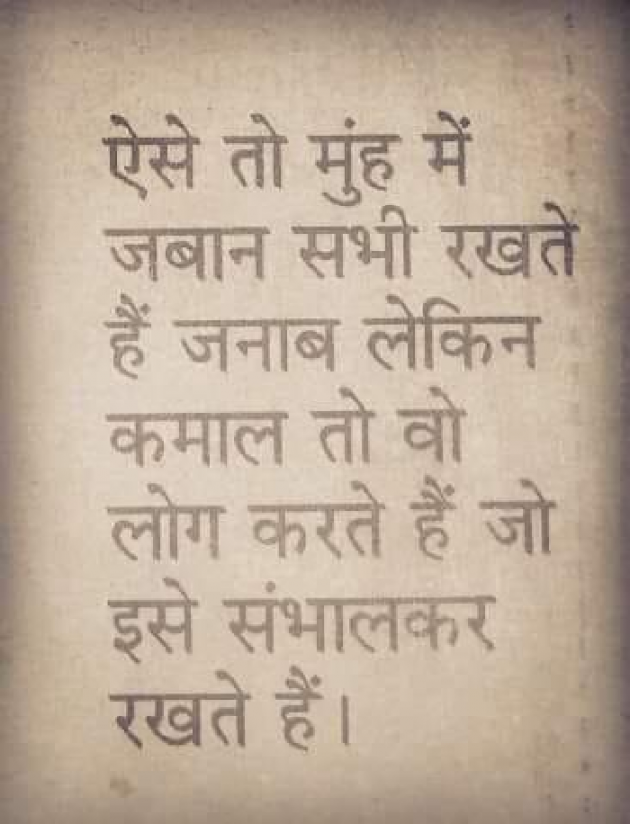 ऐसे तो मुंह में
जबान सभी रखते
हैं जनाब लेकिन
कमाल तो वो
लोग करते हैं जो
इसे संभालकर
रखते हैं।